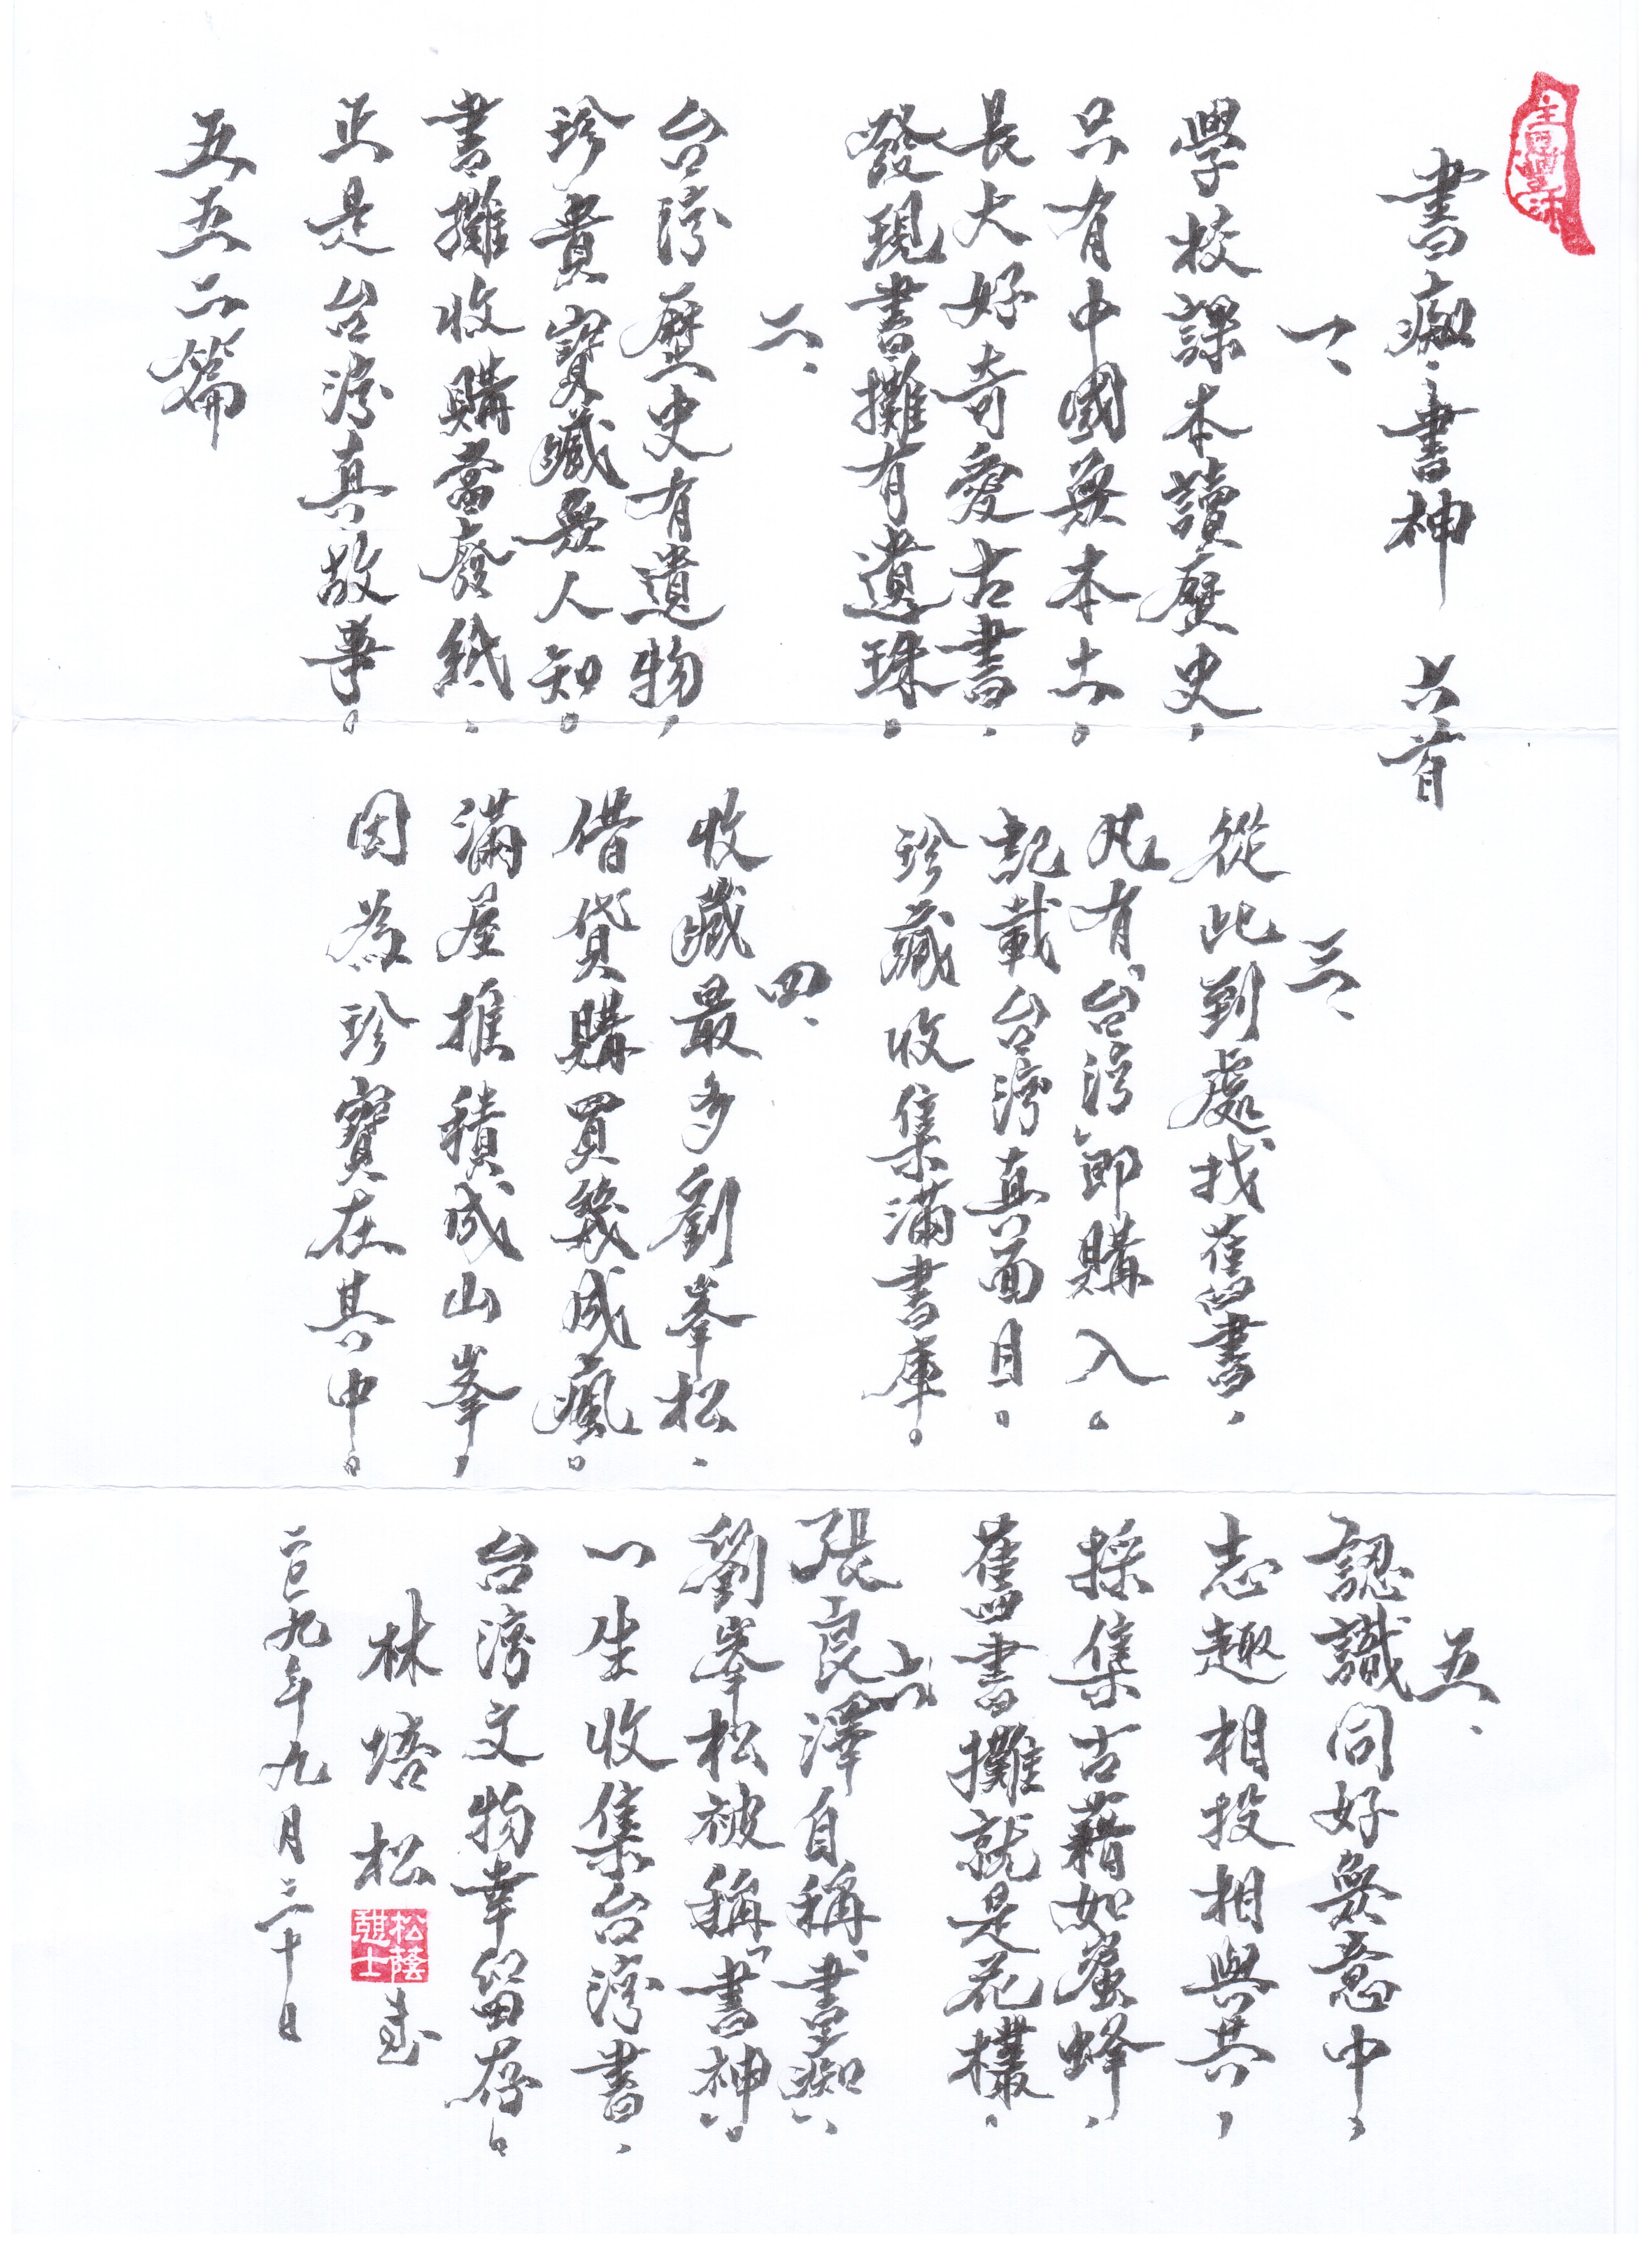 書痴·書神 六首
一、
學校課本讀歷史，
只有中國無本土。
長大好奇愛古書、
發現書攤有遺珠。
二、
台灣歷史有遺物，
珍貴寶藏無人知。
書攤收購當廢紙、
正是台灣真故事。
五五二篇
三、
從此到處找舊書，
凡有「台灣」即購入。
記載台灣真面目。
珍藏收集滿書庫。
四、
收藏最多劉峯松、
借貸購買幾成瘋。
滿屋堆積成山峯，
因為珍寶在其中。
五、
認識同好無意中，
志趣相投相與共，
採集古藉如蜜蜂、
舊書攤就是花欉。
六
張良澤自稱「書痴」、
劉峯松被稱「書神」。
一生收集台灣書、
台灣文物幸留存。
林 松
松蔭
九年九月二十日